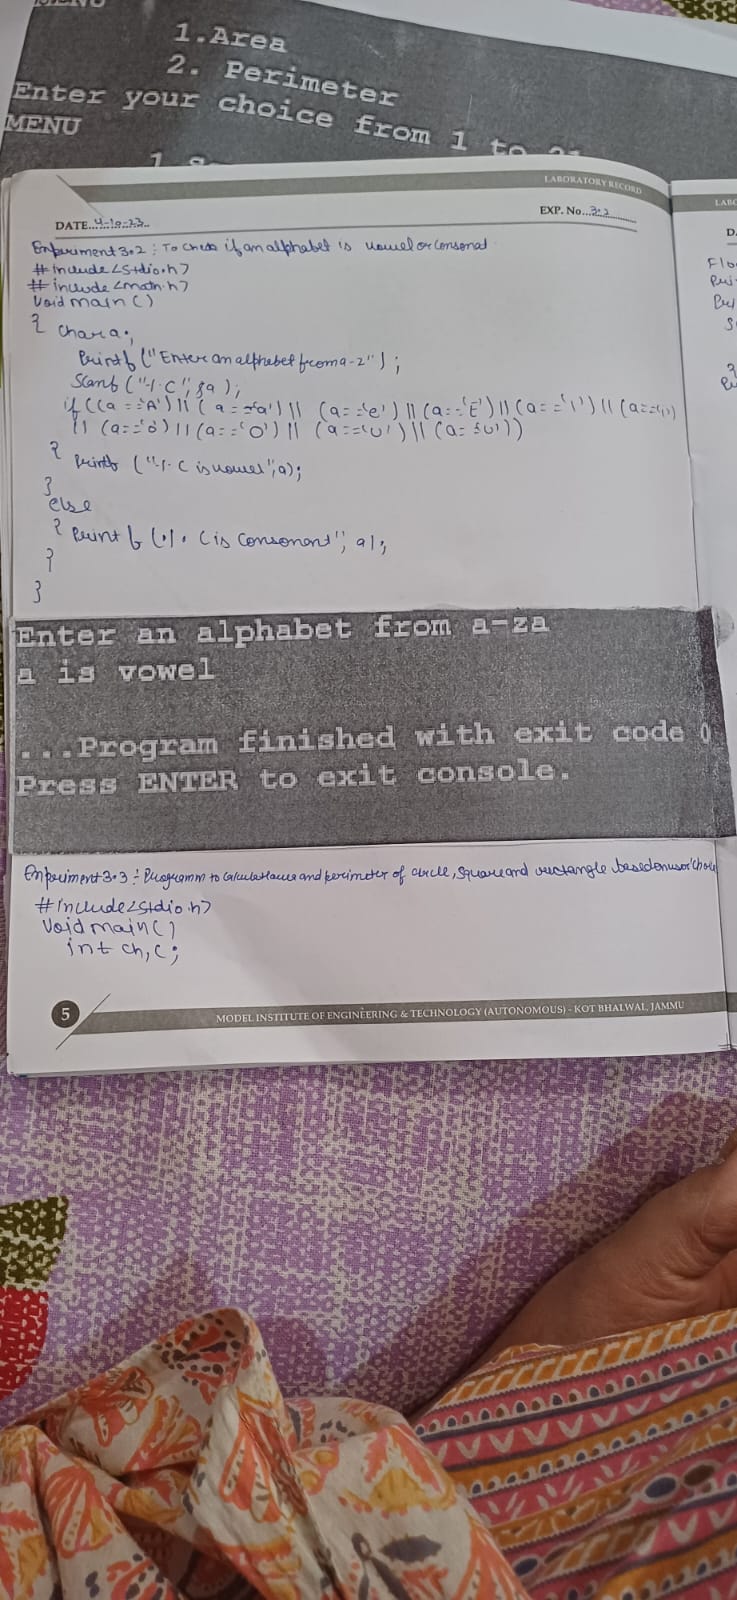 MENU
1.Area
2. Perimeter
Enter your choice from 1 to
MENU
1
LABORATORY RECORD
LABO
DATE...4-10-23..
EXP. No...3.2
Experiment 3.2 : To check if an alphabet is vowel or consonal
#include <stdio.h>
#include <math.h>
Void main ()
{ char a;
Printf ("Enter an alphabet from a-z") ;
Scanf ("%c",&a);
if ((a=='A')|| (a=='a')|| (a=='e')||(a=='E')||(a=='I')||(a=='i')
|| (a=='o')||(a=='O')|| (a=='U')||(a='u'))
{
Printf ("%c is vowel",a);
}
else
{ Print f (%c is Consonent", a);
}
}
Enter an alphabet from a-za
a is vowel
...Program finished with exit code 0
Press ENTER to exit console.
Experiment 3.3 :- Programm to calculate area and perimeter of circle, square and rectangle based on user choice
#include<stdio.h>
Void main()
int ch,c;
5
MODEL INSTITUTE OF ENGINEERING & TECHNOLOGY (AUTONOMOUS) - KOT BHALWAL, JAMMU
D.
Flo
Pri